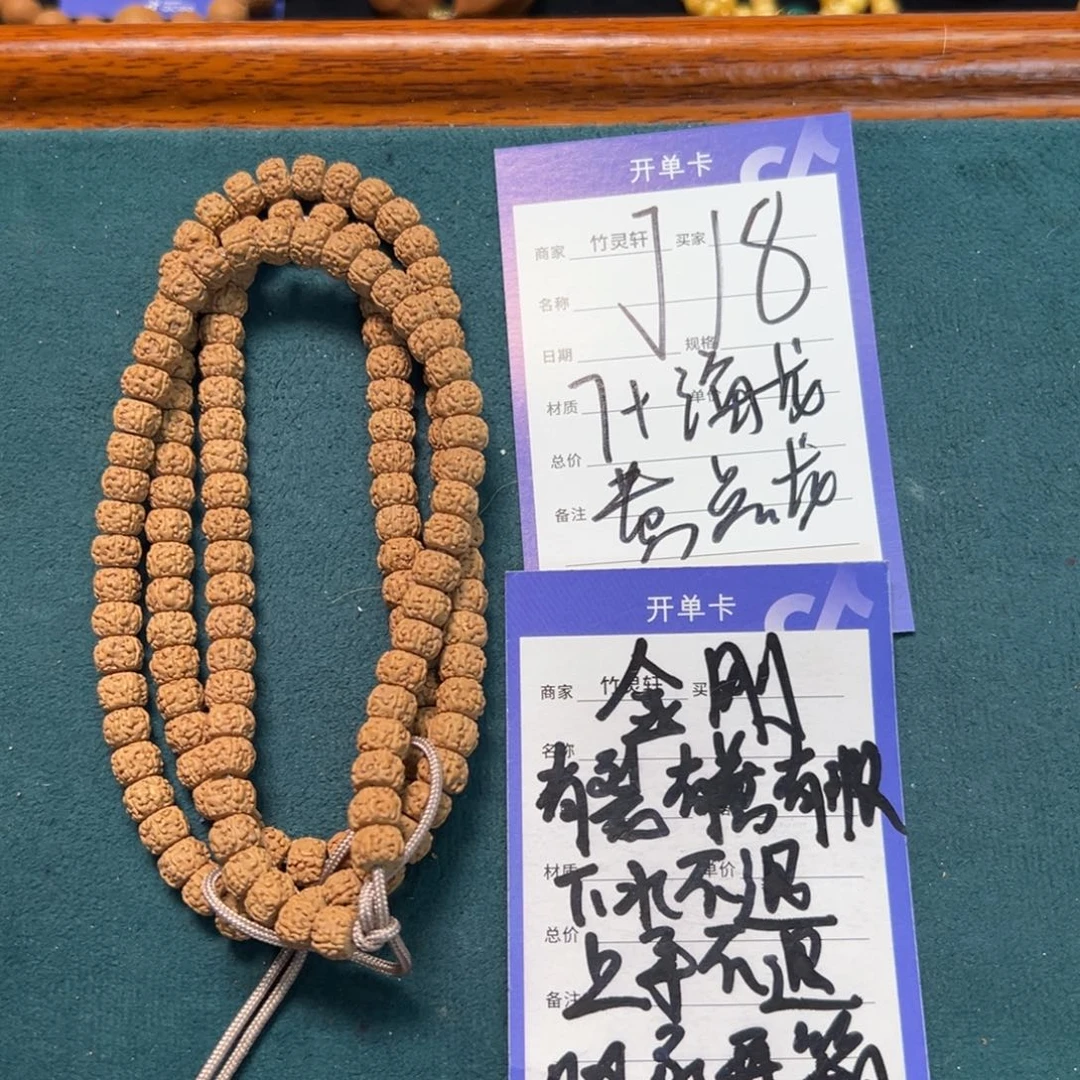 开单卡
商家 竹灵轩 买家
J18
名称
日期 规格
材质 单价
7+海龙
总价
备注 黄点龙
开单卡
金刚
商家 竹灵轩 买
名称
有裂有黄有服
材质 单价
下水不退
总价
上手不退
备注